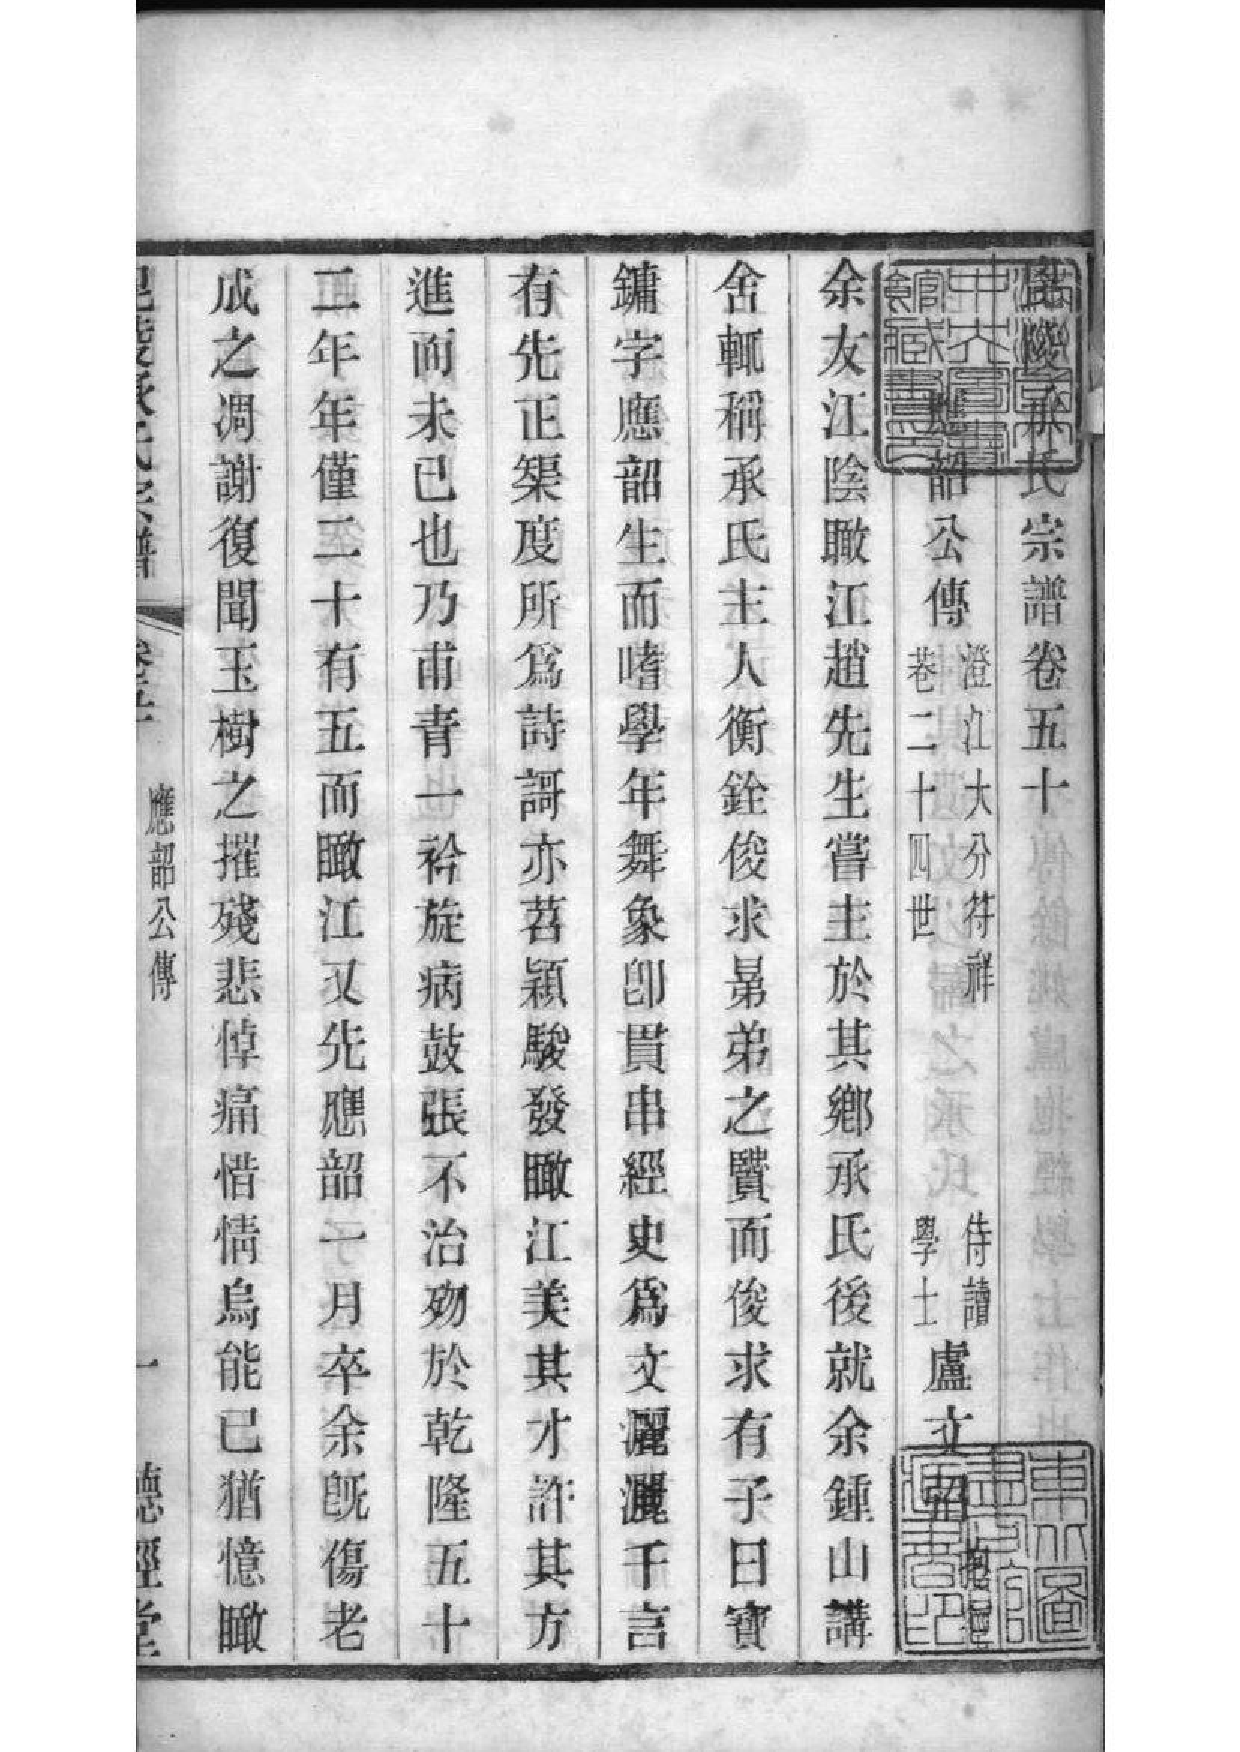 毘陵承氏宗譜卷五十
應韶公傳 澄江大分符祥巷二十四世 侍讀學士 盧文弨 抱經
余友江陰瞰江趙先生嘗主於其鄉承氏後就余鍾山講
舍輒稱承氏主人衡銓俊求晜弟之賢而俊求有子曰寶
鏞字應韶生而嗜學年舞象卽貫串經史爲文灑灑千言
有先正榘度所爲詩謌亦苕穎駿發瞰江美其才許其方
進而未已也乃甫青一衿旋病鼓張不治歾於乾隆五十
二年年僅二十有五而瞰江又先應韶一月卒余旣傷老
成之凋謝復聞玉樹之摧殘悲悼痛惜情烏能已猶憶瞰
毘陵承氏宗譜 卷五十 應韶公傳 一 德經堂
國立中央圖書館藏書
東北圖書館藏書印